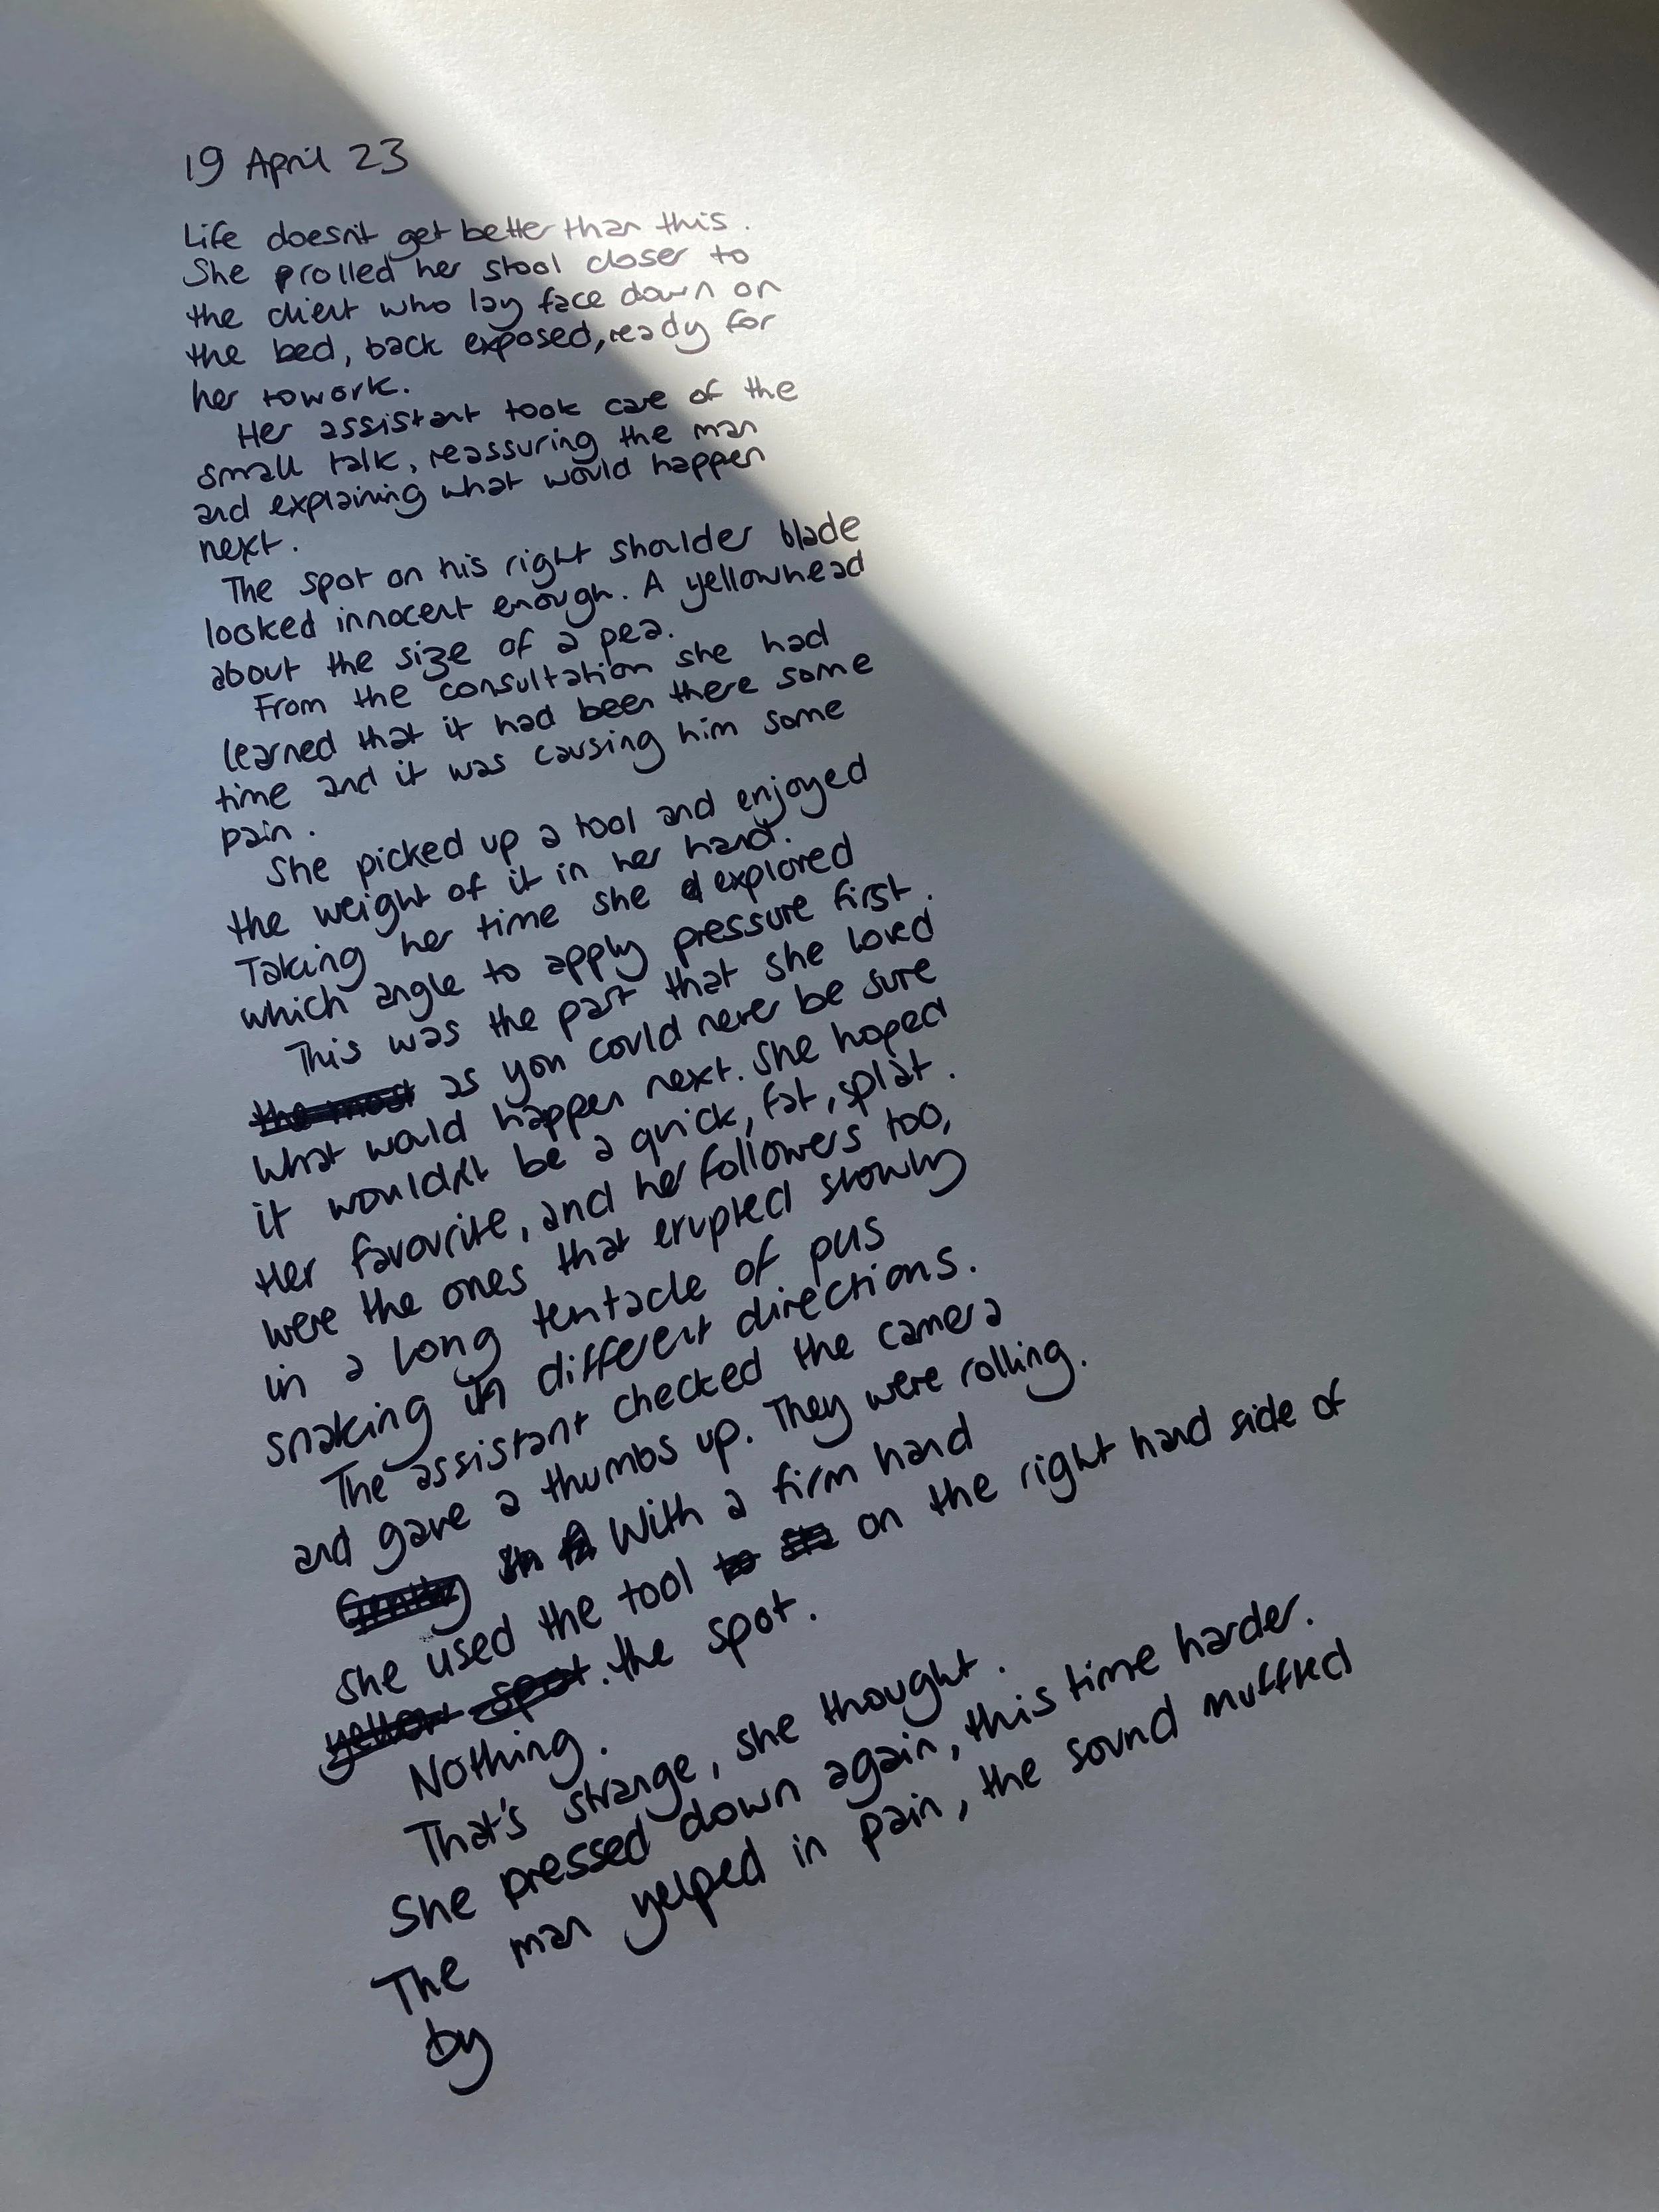 19 April 23
Life doesn't get better than this.
She prolled her stool closer to
the client who lay face down on
the bed, back exposed, ready for
her to work.
Her assistant took care of the
small talk, reassuring the man
and explaining what would happen
next.
The spot on his right shoulder blade
looked innocent enough. A yellowhead
about the size of a pea.
From the consultation she had
learned that it had been there some
time and it was causing him some
pain.
She picked up a tool and enjoyed
the weight of it in her hand.
Taking her time she explored
which angle to apply pressure first.
This was the part that she loved
the most as you could never be sure
what would happen next. She hoped
it wouldn't be a quick, fat, splat.
Her favourite, and her followers too,
were the ones that erupted slowly
in a long tentacle of pus
snaking in different directions.
The assistant checked the camera
and gave a thumbs up. They were rolling.
Gently With a firm hand
she used the tool to on the right hand side of
yellow spot. the spot.
Nothing.
That's strange, she thought.
She pressed down again, this time harder.
The man yelped in pain, the sound muffled
by